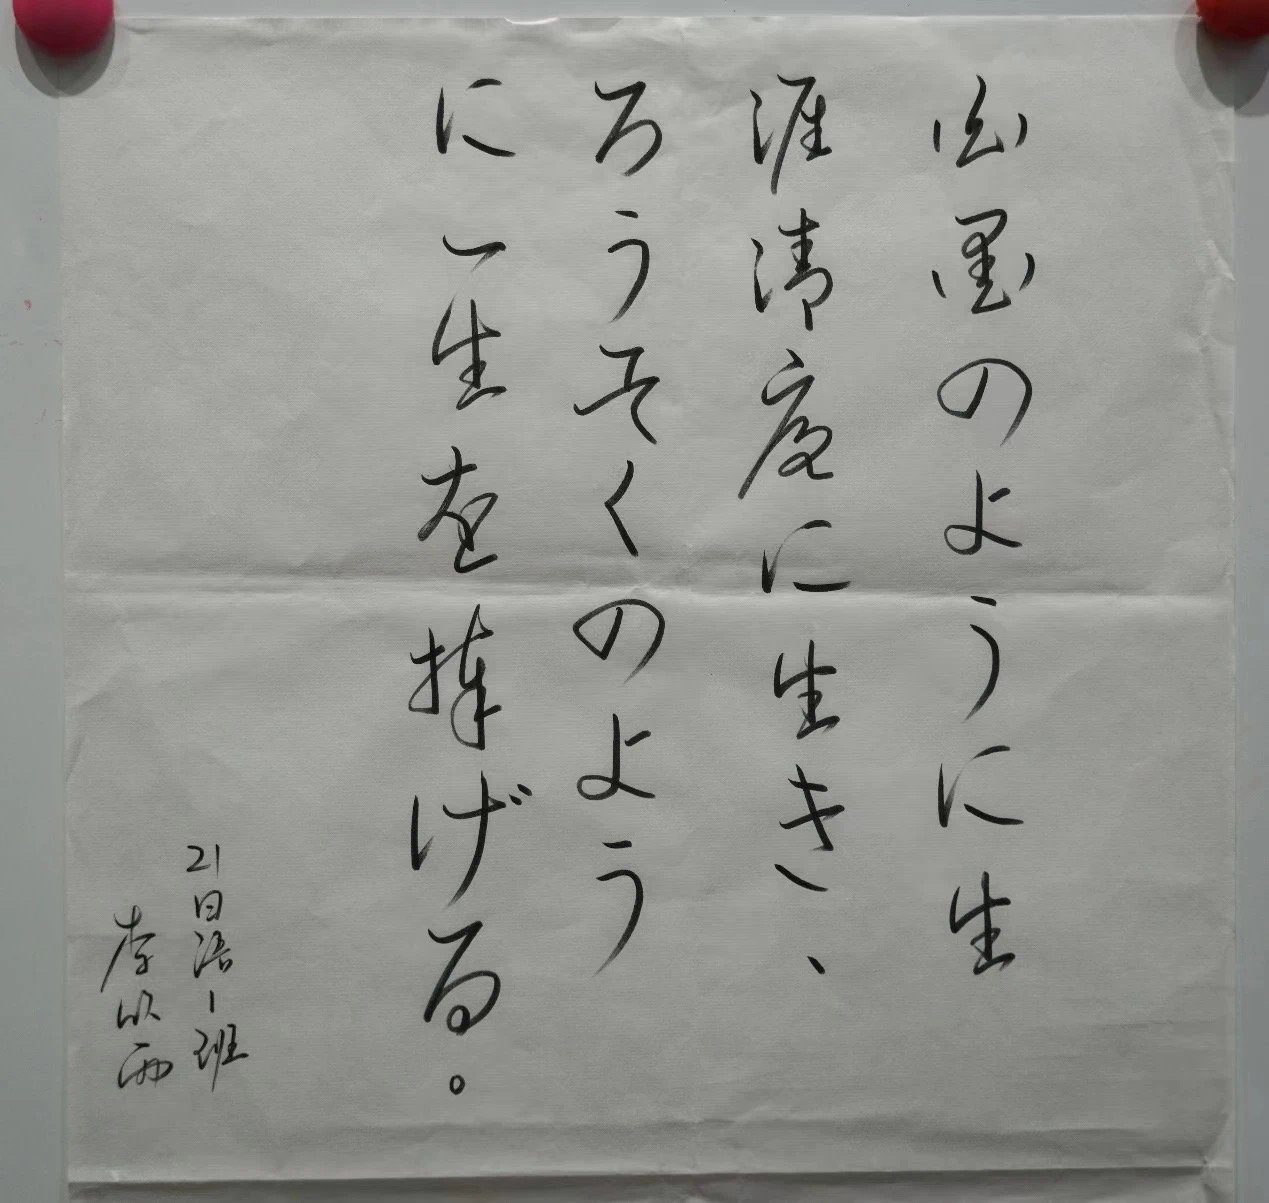 白墨のように生
涯清廉に生き、
ろうそくのよう
に一生を捧げる。
21日语1班
李